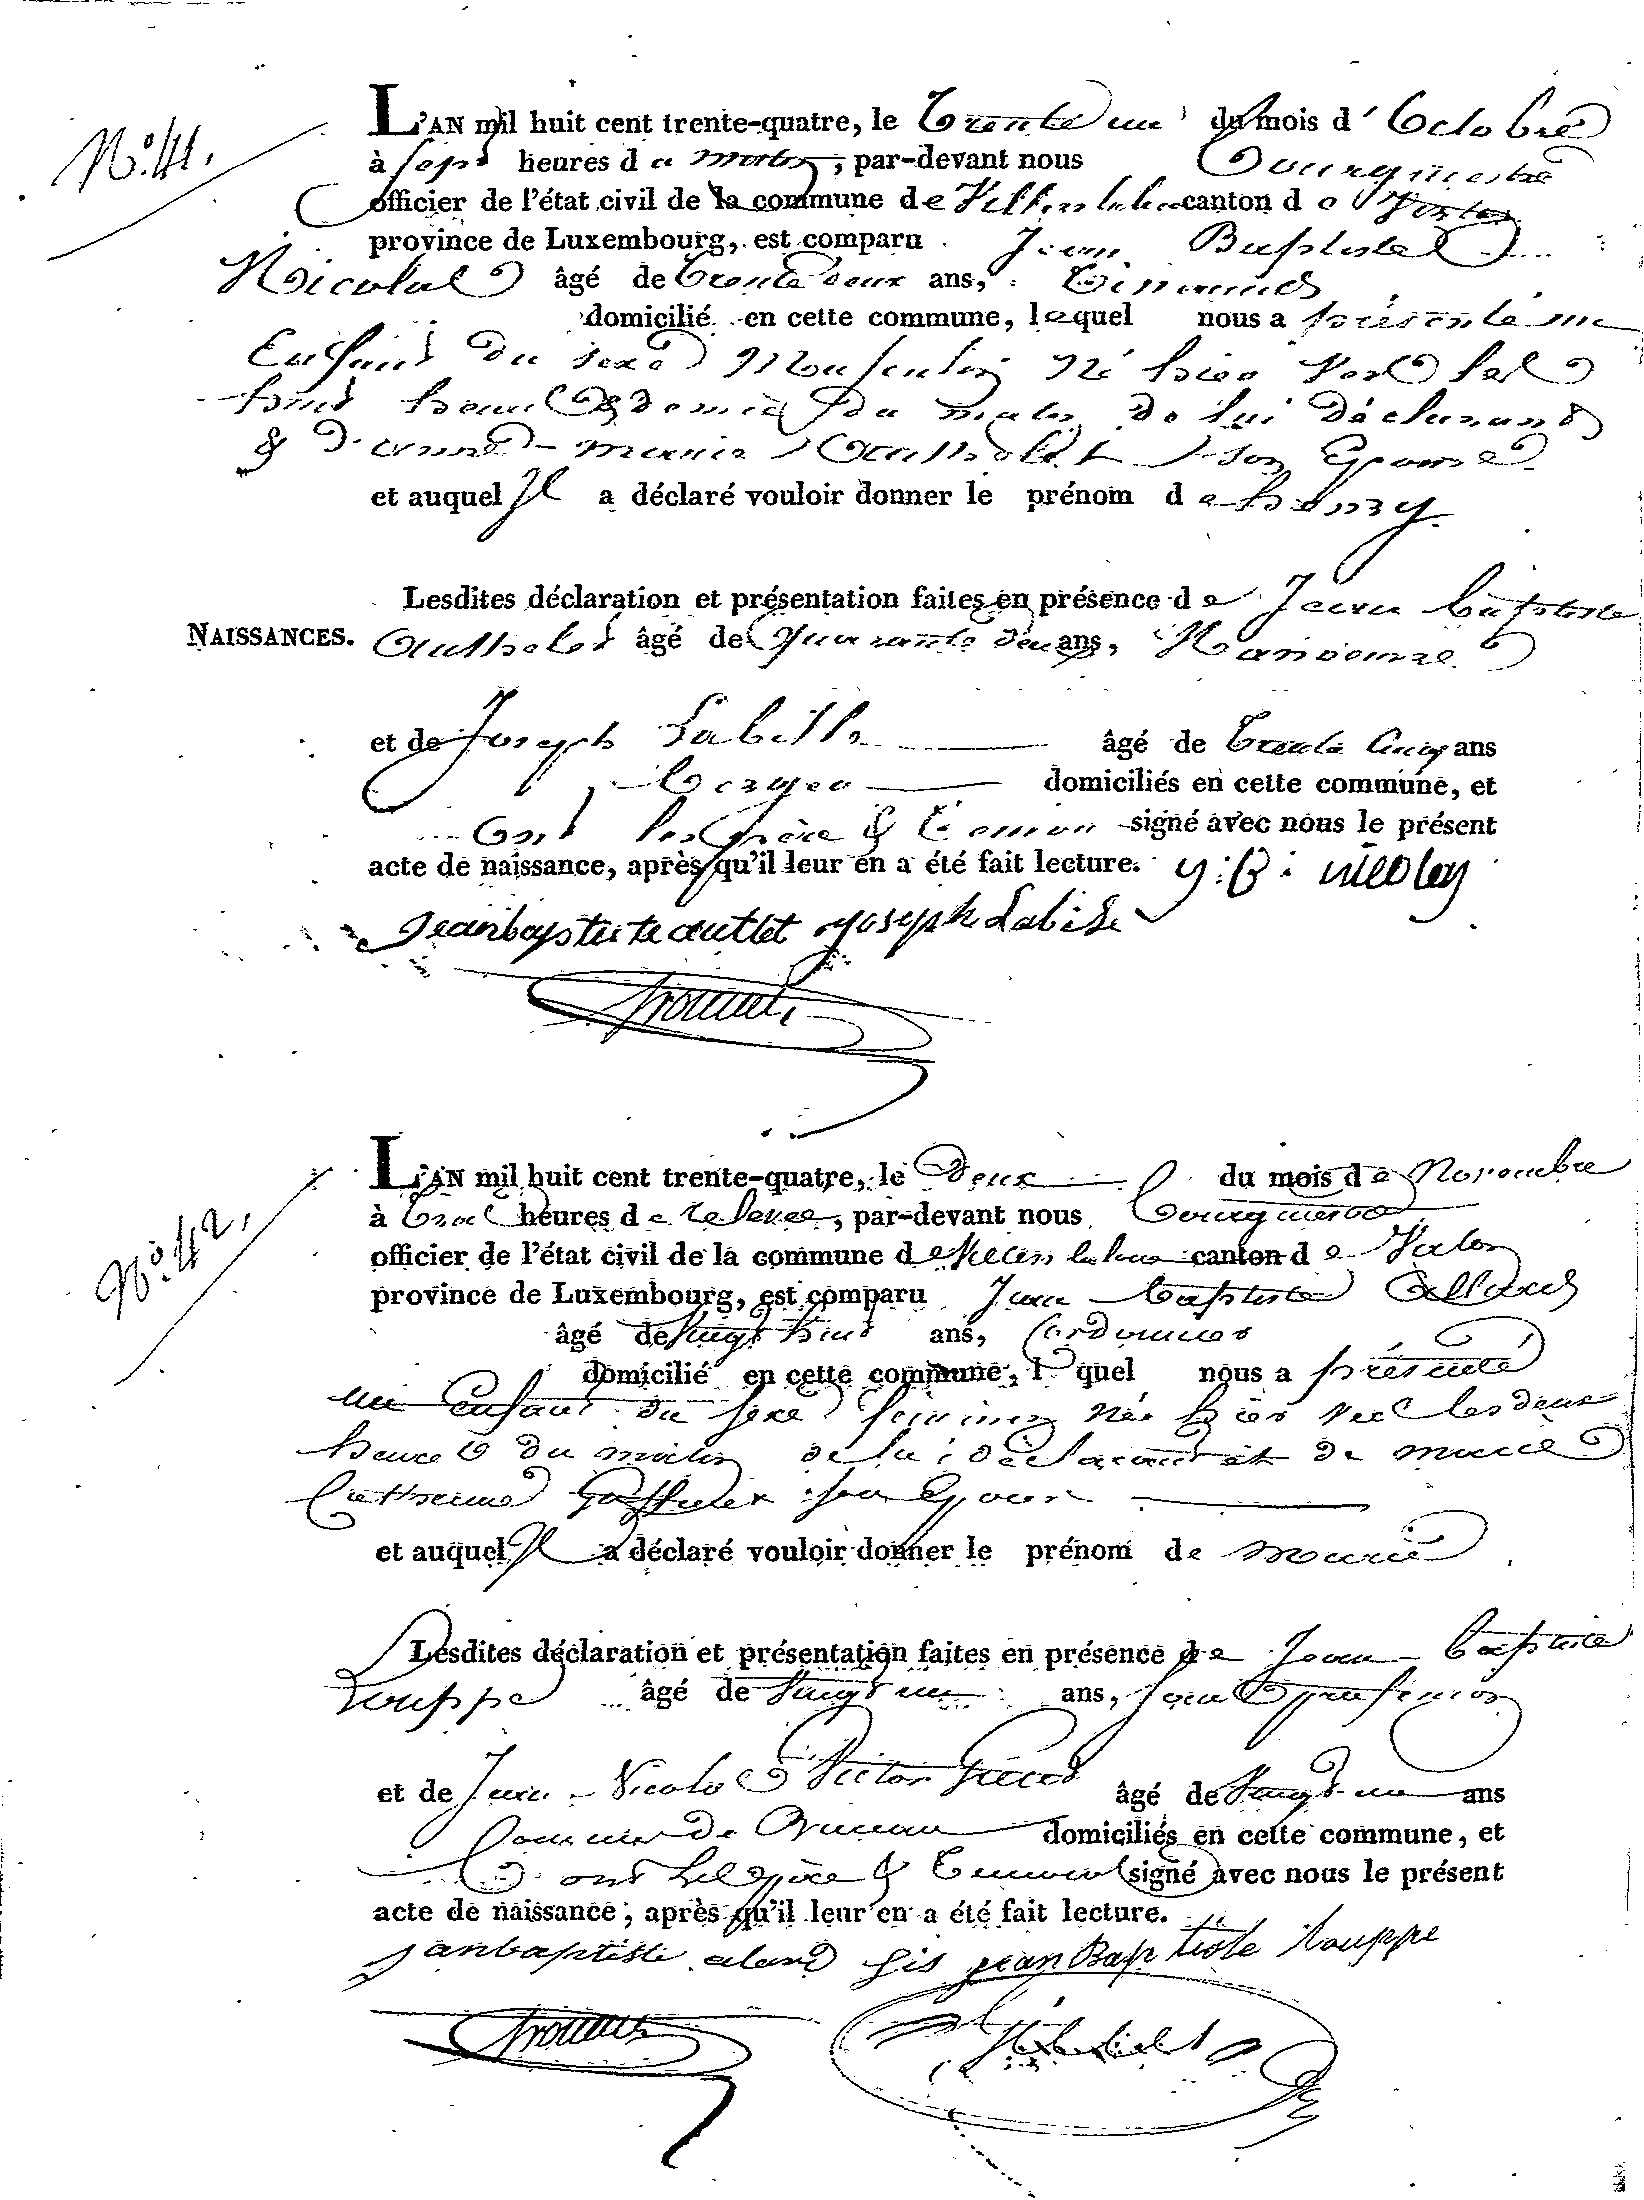 N.º 41.
L'AN mil huit cent trente-quatre, le Trente un du mois d' Octobre
à sept heures du matin, par-devant nous Bourgmestre
officier de l'état civil de la commune de Villers la loue canton de Virton
province de Luxembourg, est comparu Jean Baptiste
Nicolas âgé de trente deux ans, Tisserand
domicilié en cette commune, lequel nous a présenté un
Enfant du sexe Masculin Né hier vers les
huit heures & demie du matin de lui déclarant
& d'anne marie Authelet son Epouse
et auquel Il a déclaré vouloir donner le prénom de henry
Lesdites déclaration et présentation faites en présence de Jean Baptiste
NAISSANCES. Authelet âgé de quarante deux ans, Manoeuvre
et de Joseph Labille âgé de Trente Cinq ans
Berger domiciliés en cette commune, et
Ont les père & Temoin signé avec nous le présent
acte de naissance, après qu'il leur en a été fait lecture. J: B: nicolas
Jeanbaptiste autlet joseph Labile
N.º 42.
L'AN mil huit cent trente-quatre, le Deux du mois de Novembre
à Trois heures de relevée, par-devant nous Bourgmestre
officier de l'état civil de la commune de Villers la loue canton de Virton
province de Luxembourg, est comparu Jean Baptiste Allard
âgé de Vingt huit ans, Cordonnier
domicilié en cette commune, lequel nous a présenté
un Enfant du sexe feminin née hier vers les deux
heures du matin de lui déclarant et de marie
Catherine son Epouse
et auquel Il a déclaré vouloir donner le prénom de marie
Lesdites déclaration et présentation faites en présence de Jean Baptiste
Rouppe âgé de Vingt un ans, sans profession
et de Jean Nicolas Victor âgé de Vingt un ans
Commis de Bureau domiciliés en cette commune, et
ont les père & Temoins signé avec nous le présent
acte de naissance, après qu'il leur en a été fait lecture.
janbaptiste alard jean Baptiste Rouppe